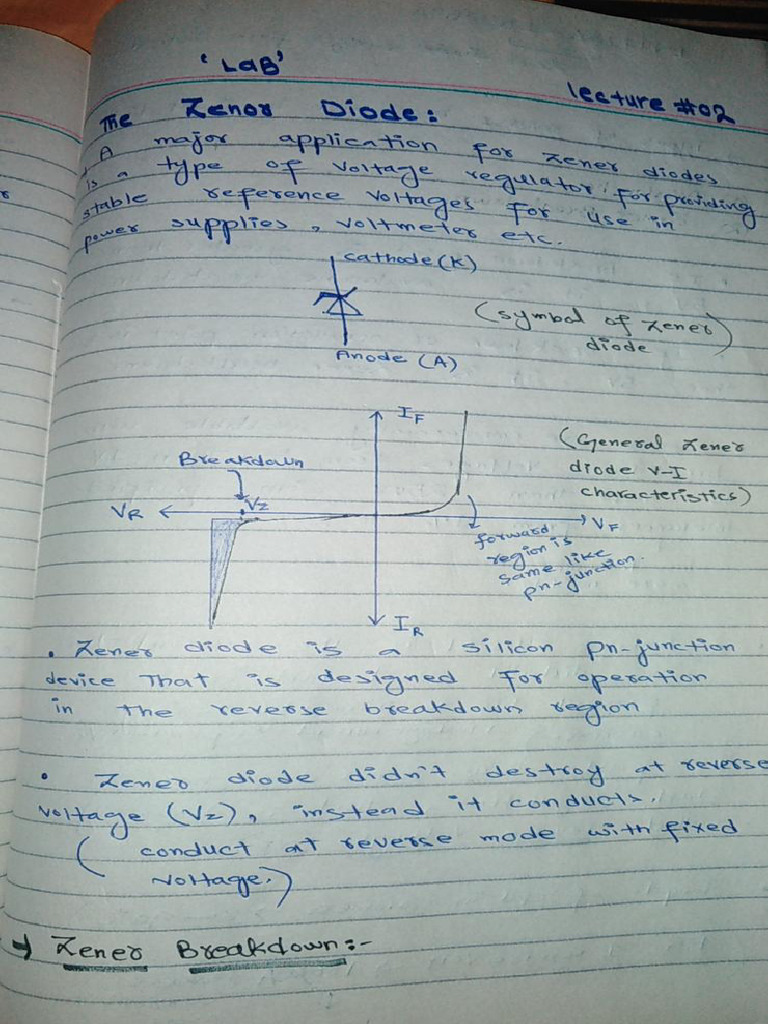 'LAB'
Lecture #02
The Zener Diode:
A major application for zener diodes
is a type of voltage regulator for providing
stable reference voltages for use in
power supplies, voltmeter etc.
Cathode (K)
(symbol of zener
diode)
Anode (A)
IF
(General Zener
diode V-I
characteristics)
Breakdown
Vz
VR
VF
forward
region is
same like
pn-junction.
IR
• Zener diode is a silicon pn-junction
device That is designed for operation
in the reverse breakdown region
• Zener diode didn't destroy at reverse
voltage (Vz), instead it conducts.
( conduct at reverse mode with fixed
voltage.)
→ Zener Breakdown:-